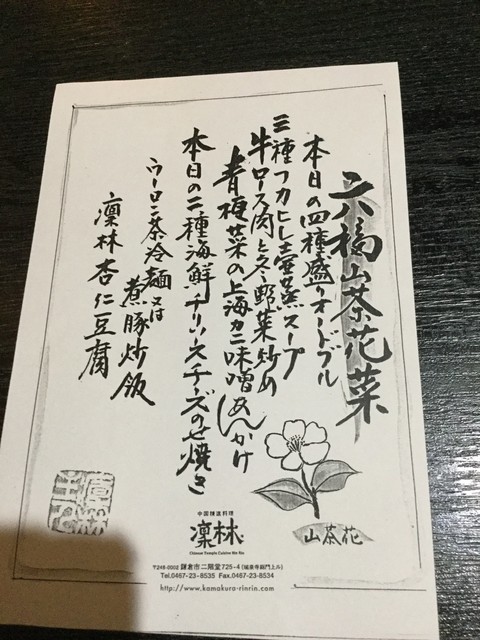 六福山茶花菜
本日の四種盛りオードブル
三種フカヒレ壷蒸スープ
牛ロース肉と冬野菜炒め
青梗菜の上海カニ味噌あんかけ
本日の二種海鮮チリソースチーズのせ焼き
ウーロン茶冷麺又は
煮豚炒飯
凛林杏仁豆腐
山茶花
中国精進料理
凛林
Chinese Temple Cuisine Rin Rin
〒248-0002 鎌倉市二階堂725-4
Tel.0467-23-8535 Fax.0467-23-8534
http://www.kamakura-rinrin.com